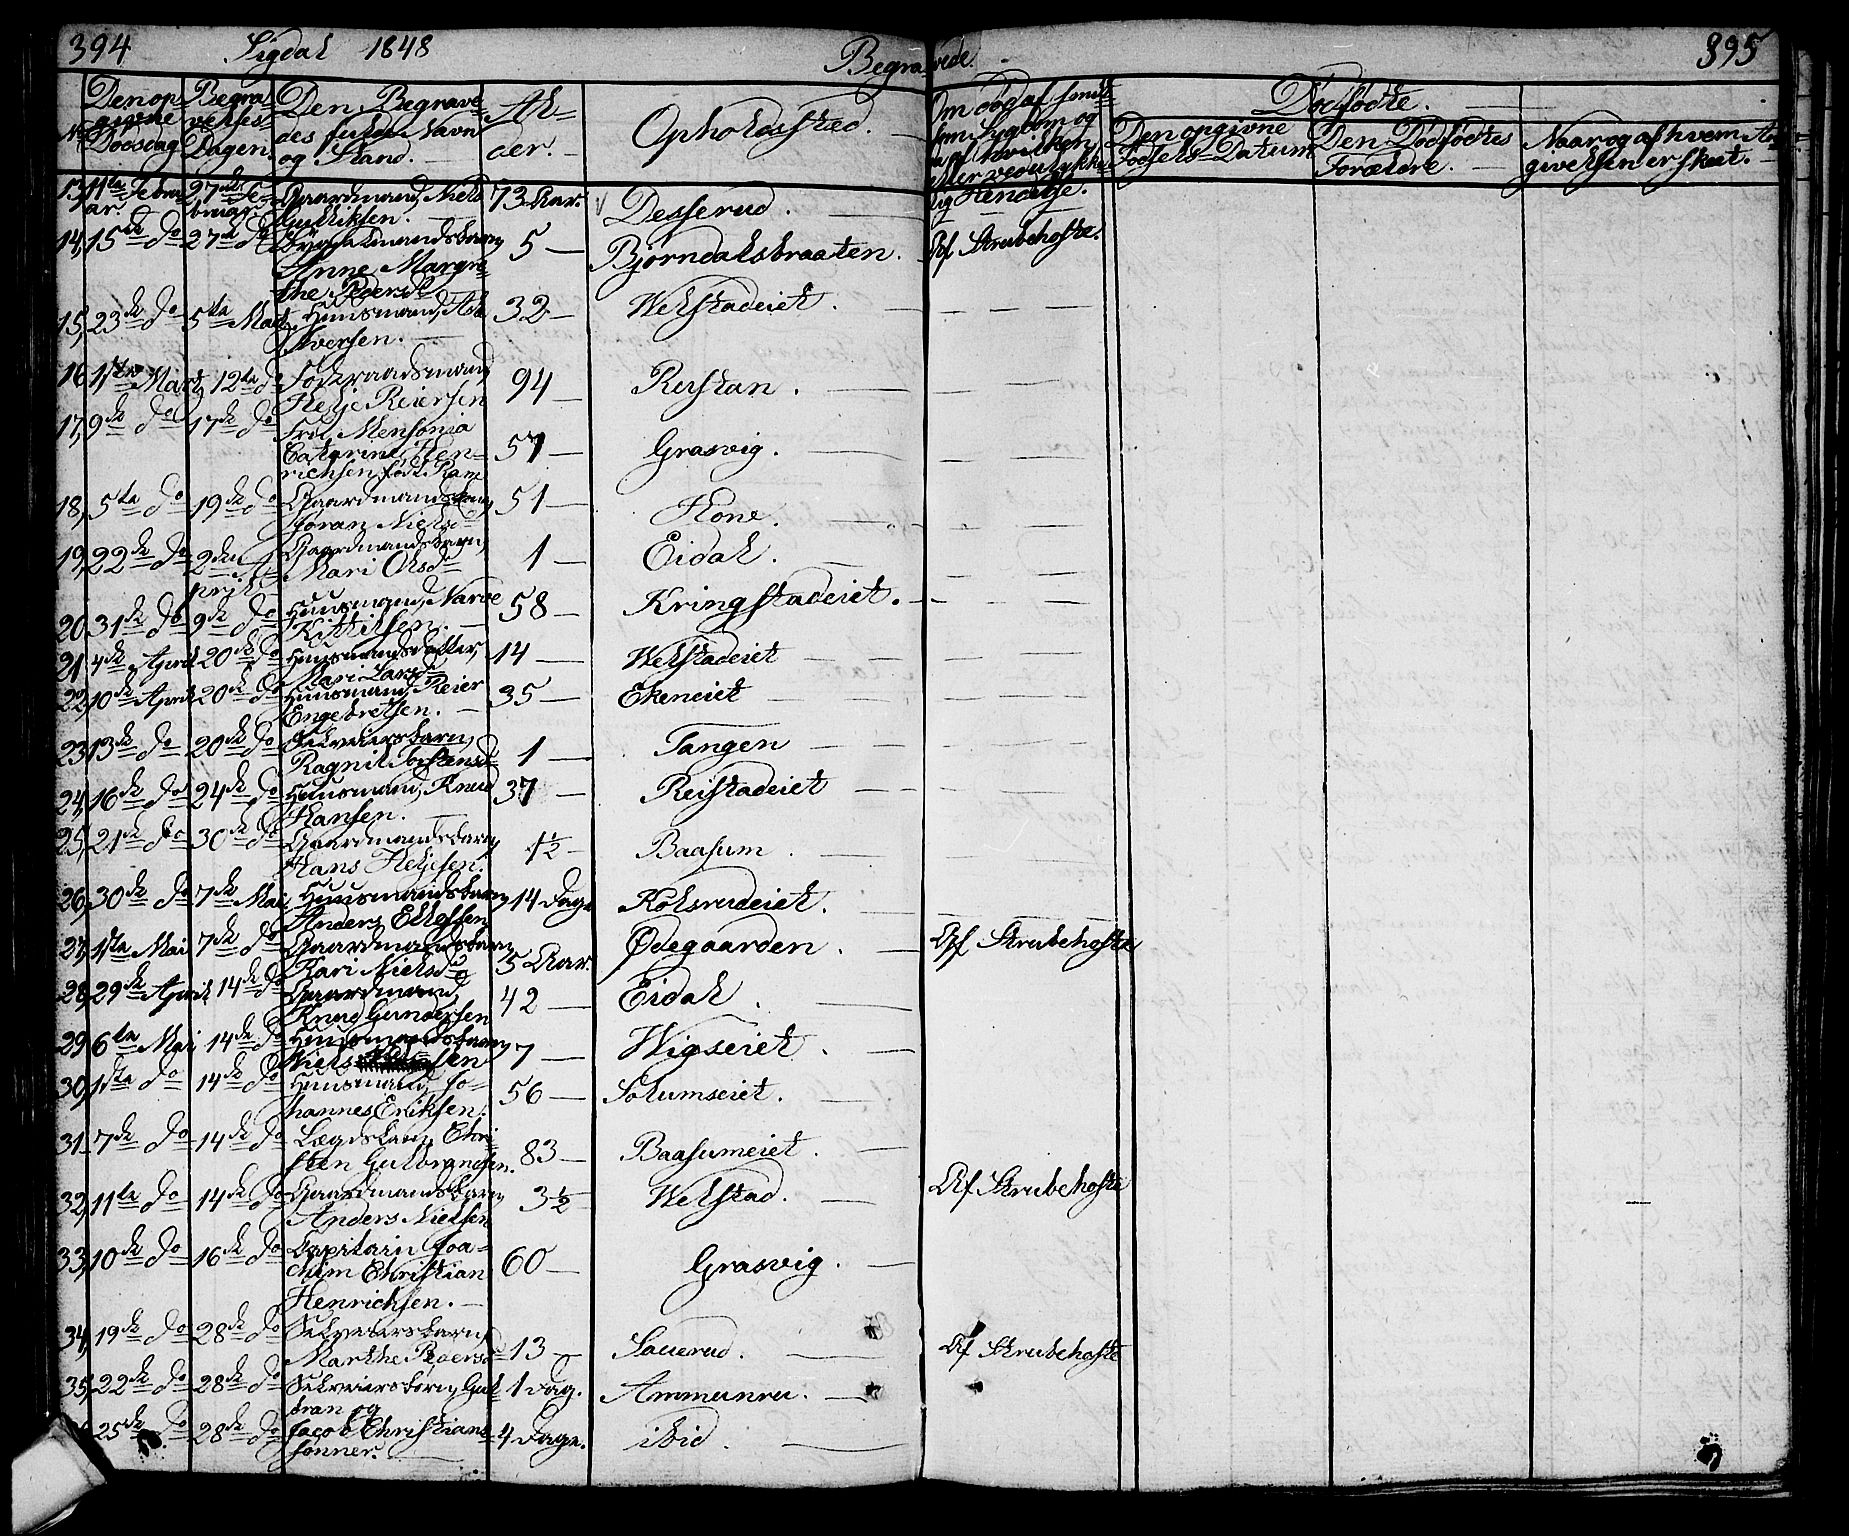 394 Sigdal 1848 Begravede. 395
No Den opgivne Dødsdag. Begravelses-Dagen. Den Begravedes fulde Navn og Stand. Alder. Opholdssted. Om død af smitsom Sygdom og af hvilken, eller ved ulykkelig Hendelse. Dødfødte.
Den opgivne Fødsels-Datum Den Dødfødtes Forældre. Naar og af hvem Angivelsen er skeet.
13, 11te Februar. 27de Februar. Gaardmand, Niels Gulliksen. 73 Aar. Desserud.
14, 15de do 27de do Anne Margrethe Pedersd 5 — Bjørndalsbraaten. Af Strubehoste.
15, 23de do 5te Martz Huusmand, Ole Iversen. 32 — Welstadeiet.
16, 1ste Martz 12te do Føderaadsmand, Helje Reiersen 94 — Reistan.
17, 9de do 17de do Frue Mensonia Catarine Henrichsen, født Ram 57 — Grasvig.
18, 5te do 19de do Gaardmandskone, Joran Nielsd 51 — Hone.
19, 22de do 2den April Gaardmandsbarn, Mari Olsd 1 — Eidal.
20, 31te do 9de do Huusmand, Narve Kittilsen. 58 — Kringstadeiet.
21, 4de April 20de do Huusmandsdatter, Mari Larsd 14 — Welstadeiet
22, 10de April 20de do Huusmand, Reier Engebretsen. 35 — Ekeneiet
23, 13de do 20de do Selveiersbarn, Ragnil Torstensd 1 — Tangen
24, 16de do 24de do Huusmand, Knud Hansen. 37 — Reistadeiet
25, 21de do 30de do Gaardmandsbarn, Hans Heljesen. 1½ — Baasum
26, 30de do 7de Mai Huusmandsbarn, Anders Ellefsen 14 Dage Kolsrudeiet.
27, 1ste Mai 7de do Gaardmandsbarn, Kari Nielsd 5 Aar. Ødegaarden. Af Strubehoste
28, 29de April 14de do Gaardmand, Knud Gundersen 42 — Eidal.
29, 6te Mai 14de do Huusmandsbarn, Niels 7 — Wigseiet.
30, 1ste do 14de do Huusmand, Johannes Eriksen. 56 — Solumseiet.
31, 7de do 14de do Lægdslam, Christen Gulbrandsen. 83 — Baasumeiet.
32, 11te do 14de do Gaardmandsbarn, Anders Nielsen 3½ Welstad. Af Strubehoste
33, 10de do 16de do Capitain Joachim Christian Henrichsen. 60 — Grasvig.
34, 19de do 28de do Selveiersbarn, Marthe Pedersd 13 — Sauerud. Af Strubehoste
35, 22de do 28de do Selveiersbørn, Gulbran og 1 Dag. Ammunru.
25de do 28de do Jacob Christianssønner. 4 Dage. ibid.